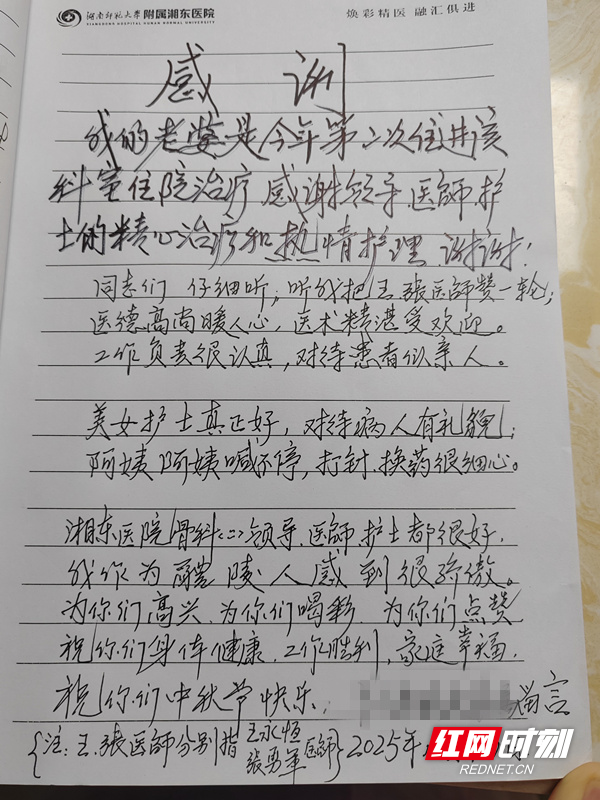 湖南师范大学附属湘东医院
XIANGDONG HOSPITAL HUNAN NORMAL UNIVERSITY
焕彩精医 融汇俱进
感 谢
我的老婆是今年第二次住进该
科室住院治疗 感谢领导 医師.护
士的精心治疗和热情护理 谢谢!
同志们 仔细听;听我把王张医師赞一轮;
医德高尚暖人心,医术精湛受欢迎。
工作负责很认真,对待患者似亲人。
美女护士真正好,对待病人有礼貌;
阿姨 阿姨喊不停,打针.换药很细心。
湘东医院骨科<二>领导.医師 护士都很好.
我作为醴陵人感到很骄傲。
为你们高兴.为你们喝彩.为你们点赞
祝你们身体健康.工作胜利.家庭幸福.
祝你们中秋节快乐.
留言
{注:王.张医師分别指王永恒
张勇军医師}2025年
红网时刻
REDNET.CN